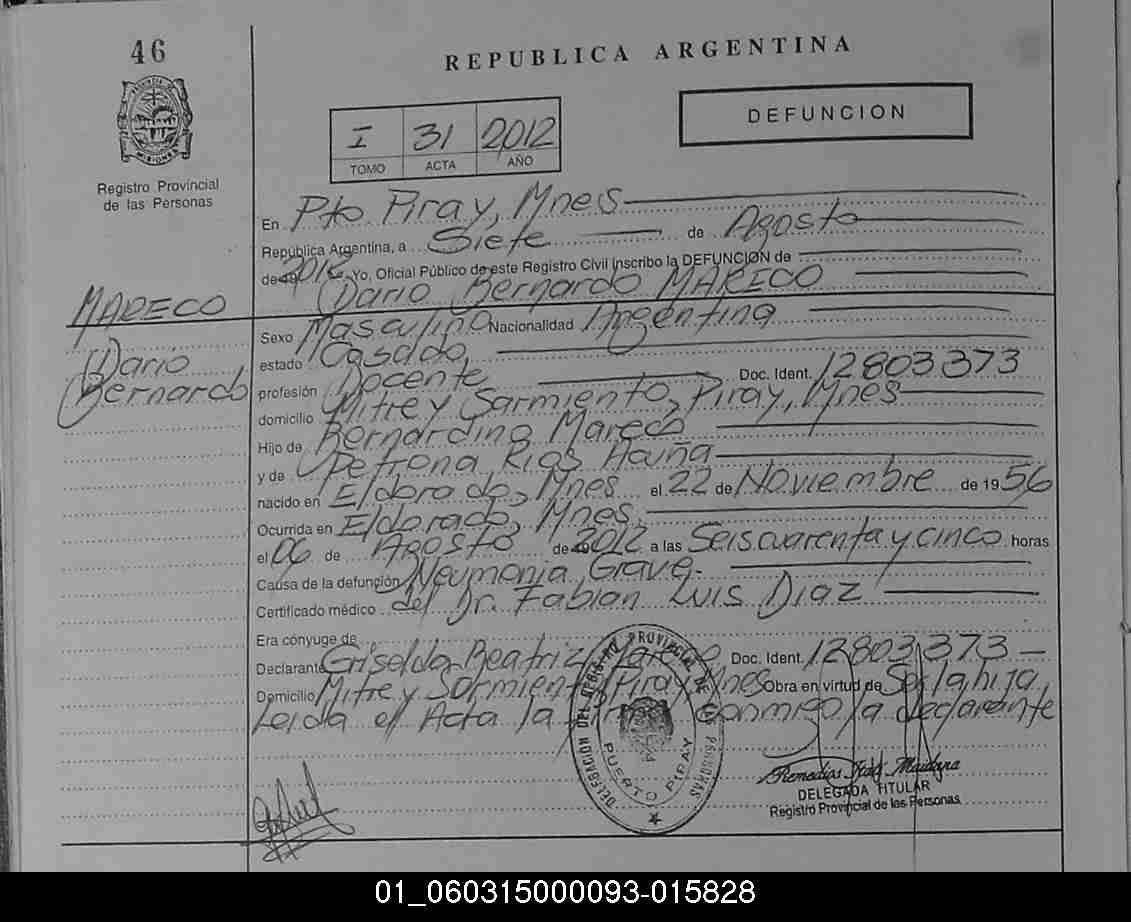 46
REPUBLICA ARGENTINA
DEFUNCION
I 31 2012
TOMO ACTA AÑO
PROVINCIA DE MISIONES
Registro Provincial
de las Personas
En Pto Piray, Mnes
República Argentina, a Siete de Agosto
de 2012 Yo, Oficial Público de este Registro Civil inscribo la DEFUNCIÓN de
Dario Bernardo MARECO
MARECO
Dario
Bernardo
Sexo Masculino Nacionalidad Argentina
estado Casado,
profesión Docente Doc. Ident. 12803373
domicilio Mitre y Sarmiento, Piray, Mnes
Hijo de Bernardino Mareco
y de Petrona Rios Acuña
nacido en Eldorado, Mnes el 22 de Noviembre de 1956
Ocurrida en Eldorado, Mnes,
el 06 de Agosto de 2012 a las Seis cuarenta y cinco horas
Causa de la defunción Neumonia Grave.
Certificado médico del Dr. Fabian Luis Diaz
Era cónyuge de
Declarante Griselda Beatriz Mareco Doc. Ident. 12803373
Domicilio Mitre y Sarmiento, Piray, Mnes Obra en virtud de Ser la hija,
Leida el Acta la firma conmigo la declarante
DELEGACION DEL REGISTRO PROVINCIAL DE PERSONAS
PUERTO PIRAY
Remedios Maidana
DELEGADA TITULAR
Registro Provincial de las Personas
01_060315000093-015828